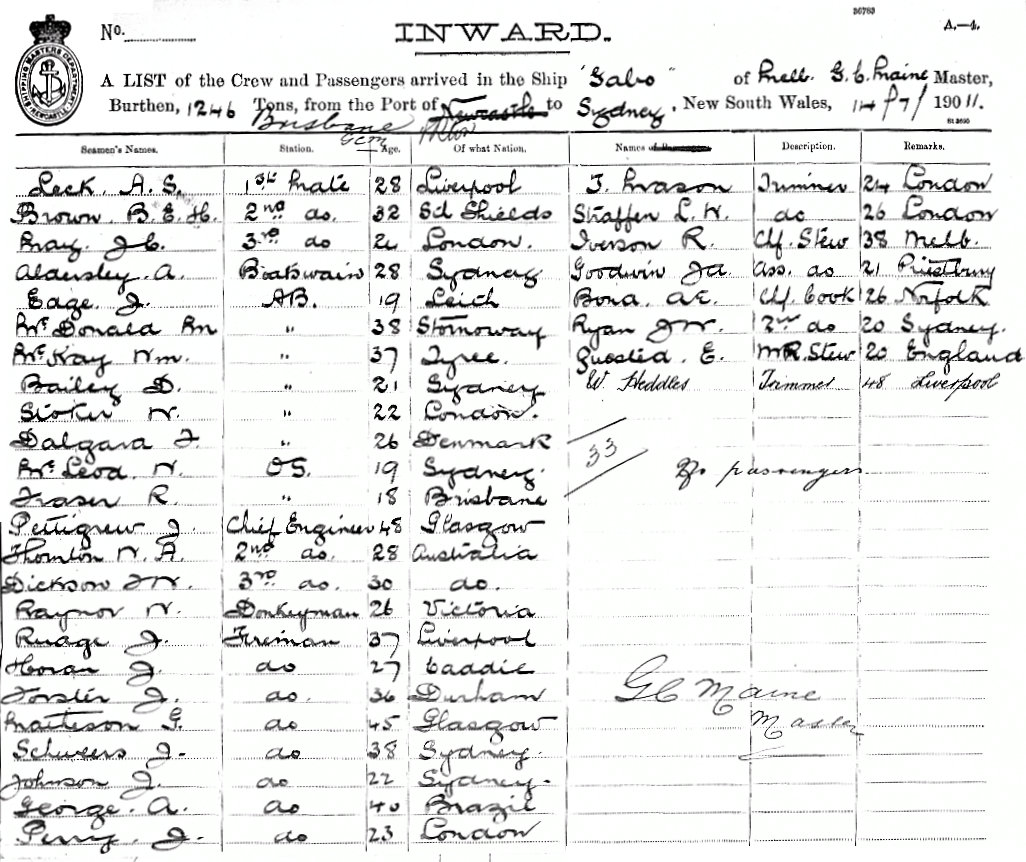 36783
No. INWARD. A.—4.
SHIPPING MASTERS DEPARTMENT NEWCASTLE
A LIST of the Crew and Passengers arrived in the Ship "Gabo" of Melb. G. C. Maine Master,
Burthen, 1246 Tons, from the Port of Newcastle to Sydney, New South Wales, 14/7/1901.
Brisbane
G C M
St 3690
Seamen's Names. Station. Age. Of what Nation. Names of Passengers Description. Remarks.
Leck A. S. 1st Mate 28 Liverpool J. Mason Trimmer 24 London
Brown B. E. H. 2nd do. 32 Sd Shields Straffen L. W. do 26 London
Bray. J. C. 3rd do London. Iverson R. Chf. Stew 38 Melb.
Aldersley. A. Boatswain 28 Sydney Goodwin Ja. Ass. do 21 Priestbury
Edge. J. AB. 19 Leith Bond. A.E. Chf. Cook 26 Norfolk
McDonald Rn " 38 Stornoway Ryan J W. 2nd do 20 Sydney.
McKay Wm. " 37 Tyree. Quosted. E. MR. Stew 20 England
Bailey D. " 21 Sydney W. Heddles Trimmer 48 Liverpool
Stoker W. " 22 London.
Dalgard F. " 26 Denmark
McLeod. N. OS. 19 Sydney. 33 passengers
Fraser R. " 18 Brisbane
Pettigrew J. Chief Engineer 48 Glasgow
Thornton W. A. 2nd do. 28 Australia
Dickson J W. 3rd do. 30 do.
Raynor W. Donkeyman 26 Victoria
Ruage J. Fireman 37 Liverpool
Horan J. do 27 Caddie
Forster J. do. 36 Durham G C Maine
Matteson G. do 45 Glasgow Master
Schweers J. do 38 Sydney.
Johnson J. do 22 Sydney.
George. A. do 40 Brazil
Perry. J. do 23 London